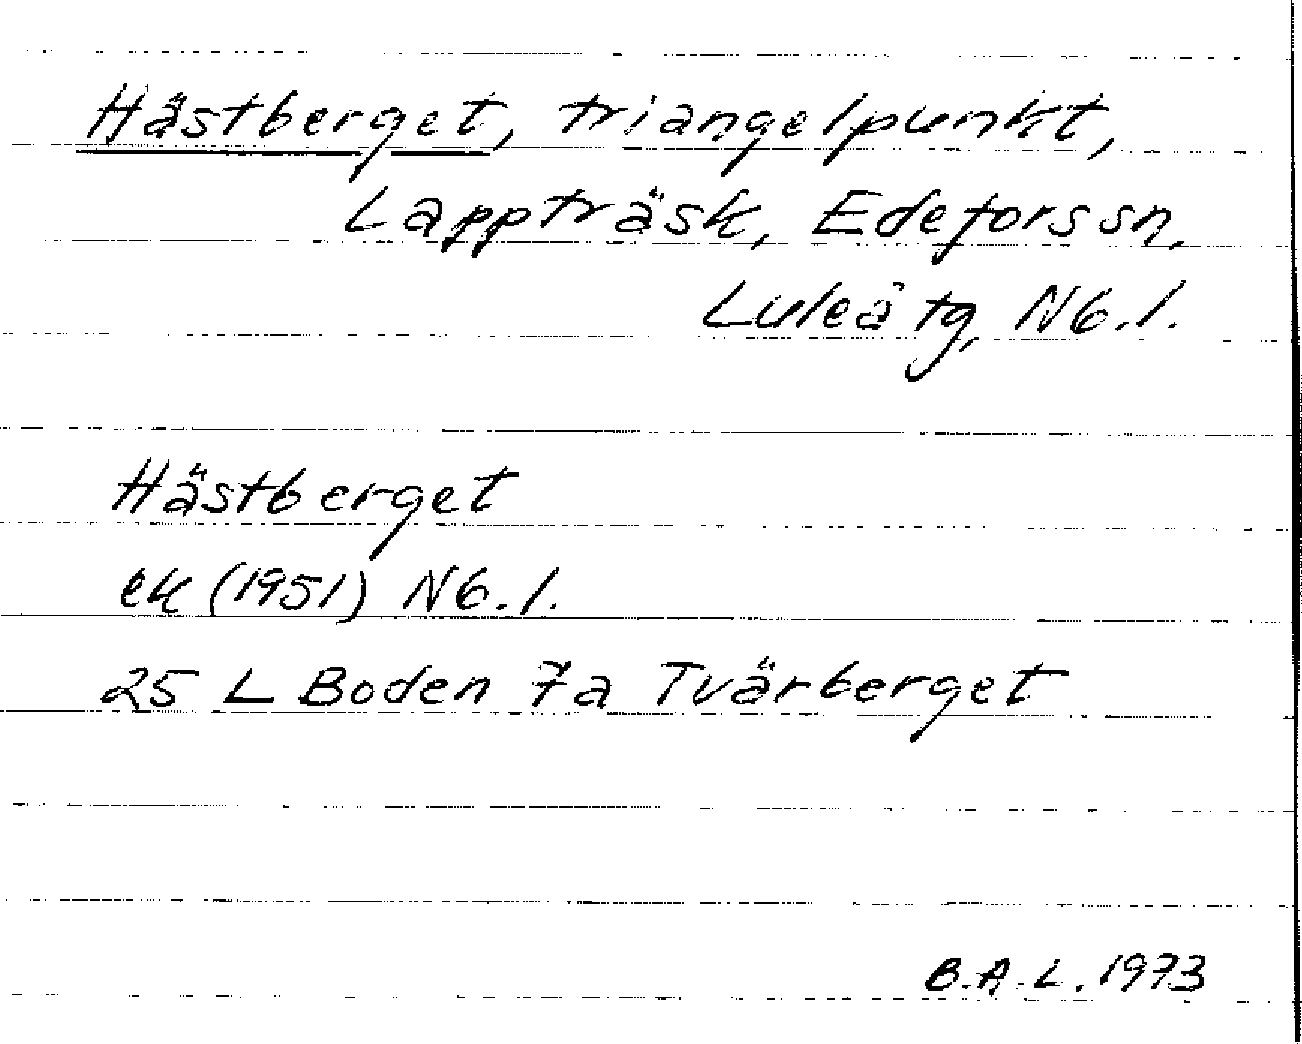 Hästberget, triangelpunkt,
Lappträsk, Edefors sn,
Luleå tg, Nb.l.
Hästberget
ek (1951) Nb.l.
25 L Boden 7a Tvärberget
B.A.L. 1973